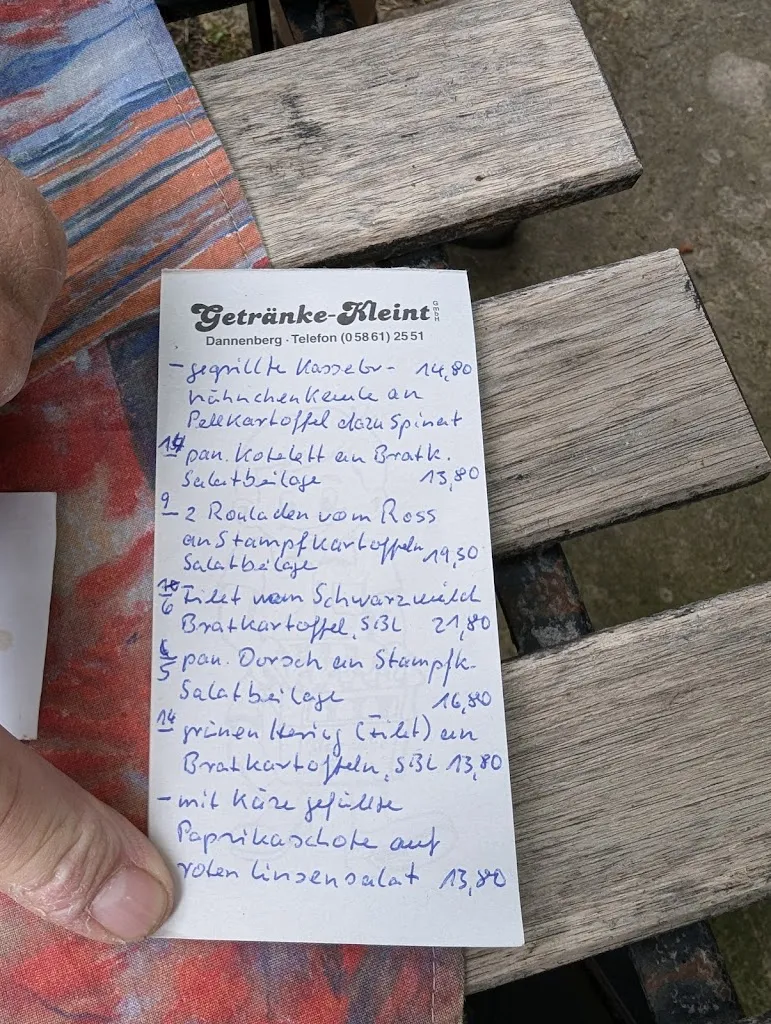 Getränke-Kleint GmbH
Dannenberg · Telefon (05861) 2551
- gegrillte Kasseler- 14,80
hähnchenkeule an
Pellkartoffel dazu Spinat
pan. Kotelett an Bratk.
Salatbeilage 13,80
9 2 Rouladen vom Ross
an Stampfkartoffeln
Salatbeilage 19,50
6 Filet vom Schwarzwild
Bratkartoffel, SBL 21,80
5 pan. Dorsch an Stampfk.
Salatbeilage 16,80
14 grünen Hering (Filet) an
Bratkartoffeln, SBL 13,80
- mit Käse gefüllte
Paprikaschote auf
roten Linsensalat 13,80